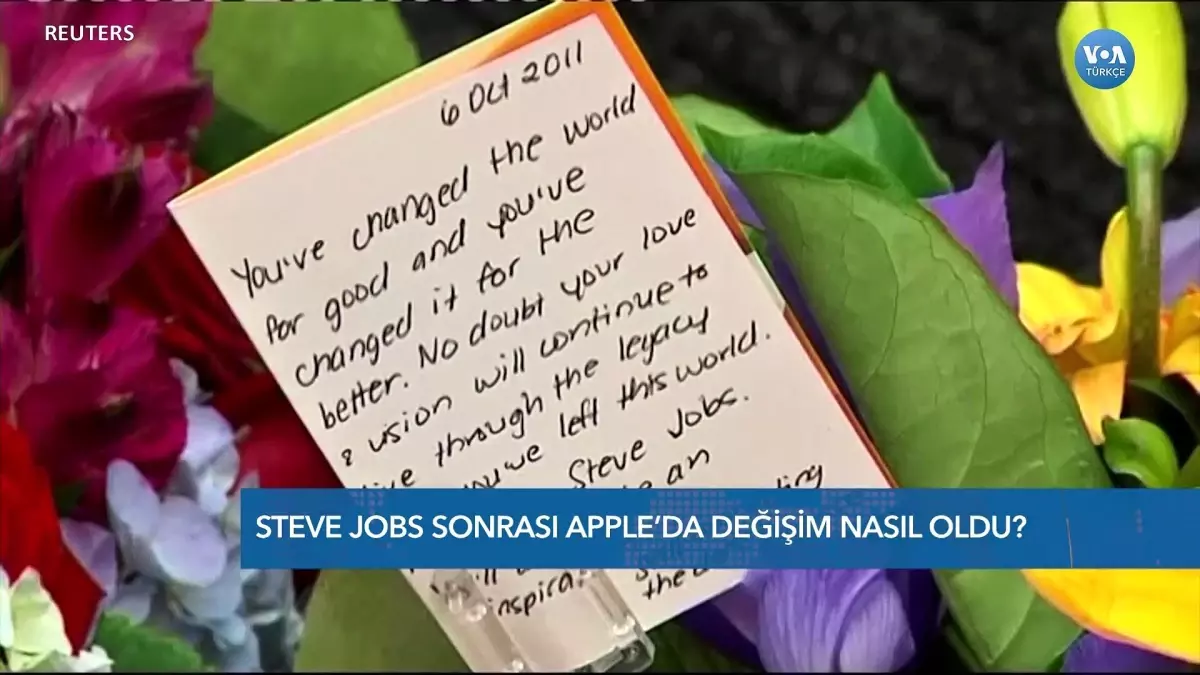 REUTERS
VOA
TÜRKÇE
6 Oct 2011
You've changed the world
for good and you've
changed it for the
better. No doubt your love
& vision will continue to
through the legacy
left this world.
Steve Jobs.
an
STEVE JOBS SONRASI APPLE'DA DEĞİŞİM NASIL OLDU?
the